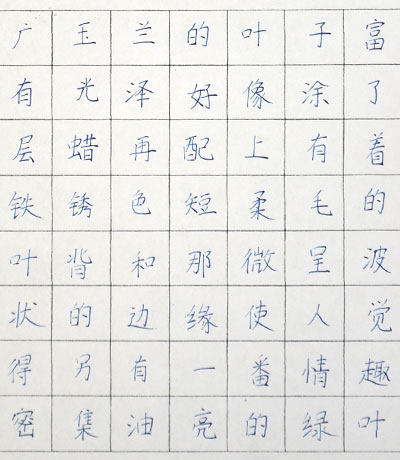 广玉兰的叶子富
有光泽好像涂了
层蜡再配上有着
铁锈色短柔毛的
叶背和那微呈波
状的边缘使人觉
得另有一番情趣
密集油亮的绿叶